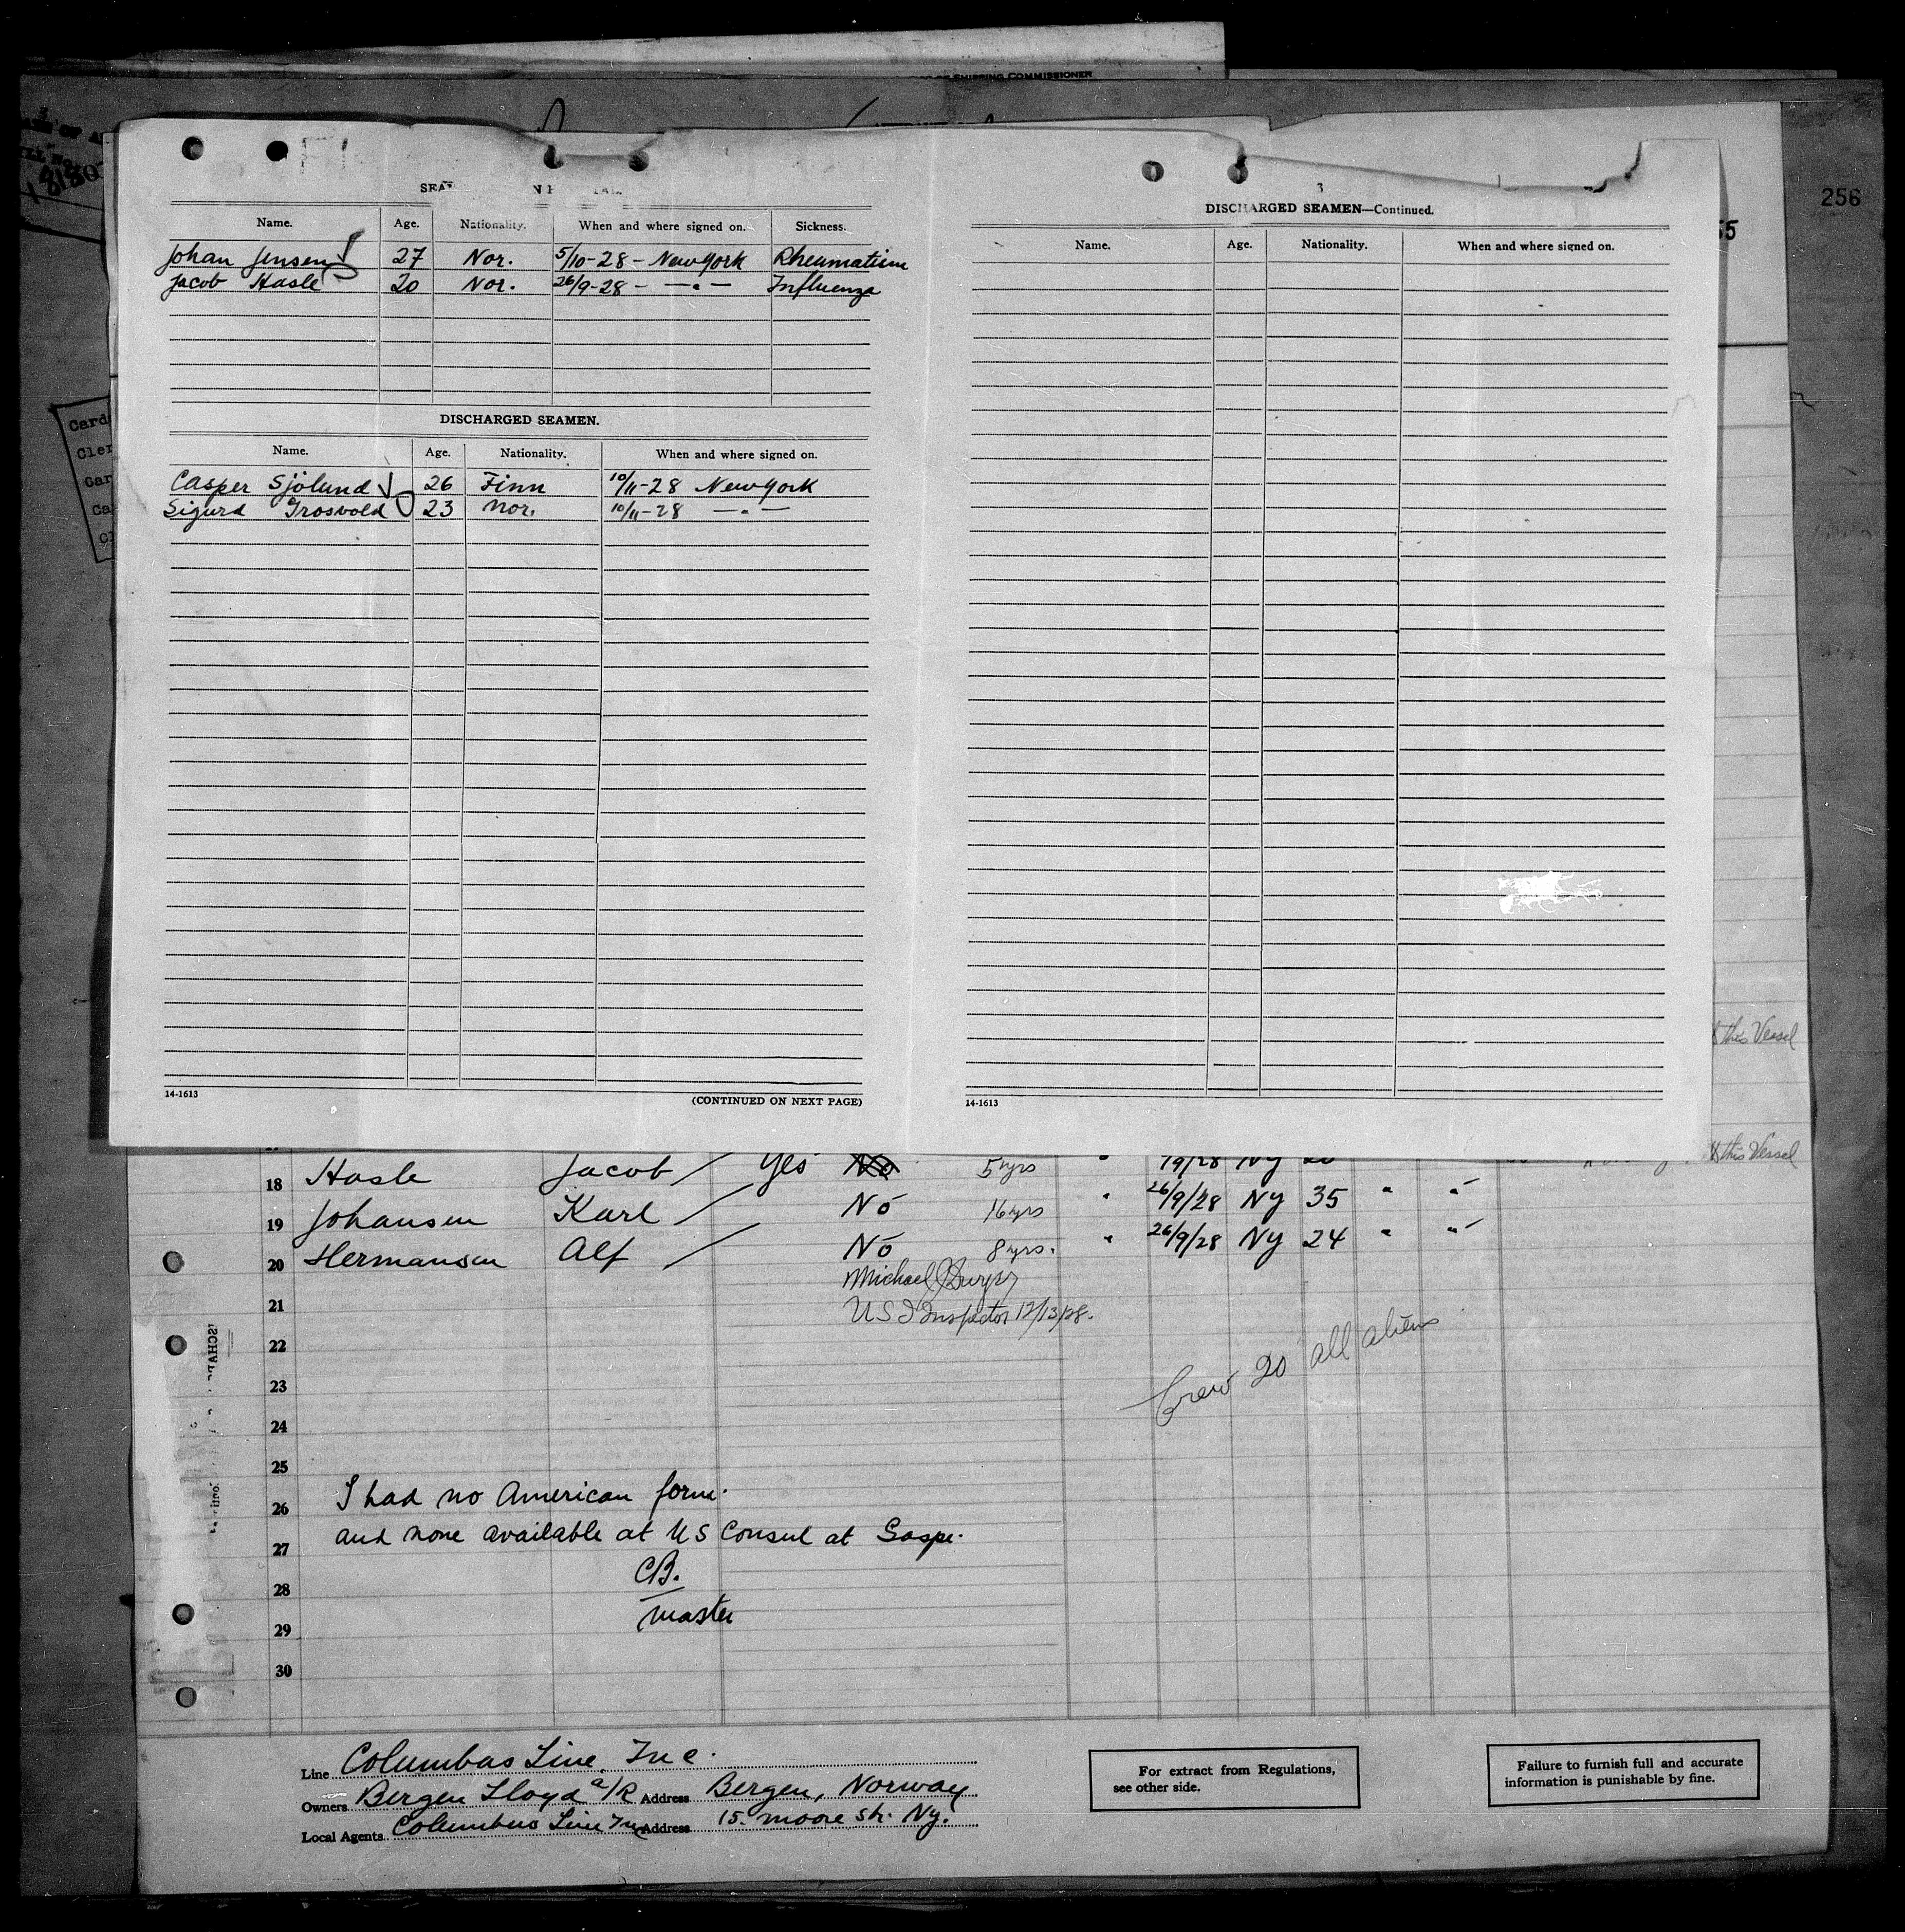 OF SHIPPING COMMISSIONER
256
55
Name. Age. Nationality. When and where signed on. Sickness.
Johan Jensen 27 Nor. 5/10-28 - New York Rheumatism
Jacob Hasle 20 Nor. 26/9-28 - — " — Influenza
DISCHARGED SEAMEN.
Name. Age. Nationality. When and where signed on.
Casper Sjölund 26 Finn 10/11-28 New York
Sigurd Trosvold 23 Nor. 10/11-28 — " —
14-1613 (CONTINUED ON NEXT PAGE)
3
DISCHARGED SEAMEN—Continued.
Name. Age. Nationality. When and where signed on.
14-1613
this Vessel
this Vessel
18 Hasle Jacob / Yes No 5 yrs " /9/28 Ny
19 Johansen Karl / No 16 yrs " 26/9/28 Ny 35 " "
20 Hermansen Alf / No 8 yrs. " 26/9/28 Ny 24 " "
Michael
21 U S I Inspector 12/13/28.
22
23 Crew 20 all aliens
24
25
26 I had no American form.
27 and none available at US Consul at Gaspe.
28 CB.
29 master
30
Line Columbus Line, Inc.
Owners Bergen Lloyd a/R Address Bergen, Norway
Local Agents Columbus Line Inc Address 15. Moore str. Ny.
For extract from Regulations,
see other side.
Failure to furnish full and accurate
information is punishable by fine.